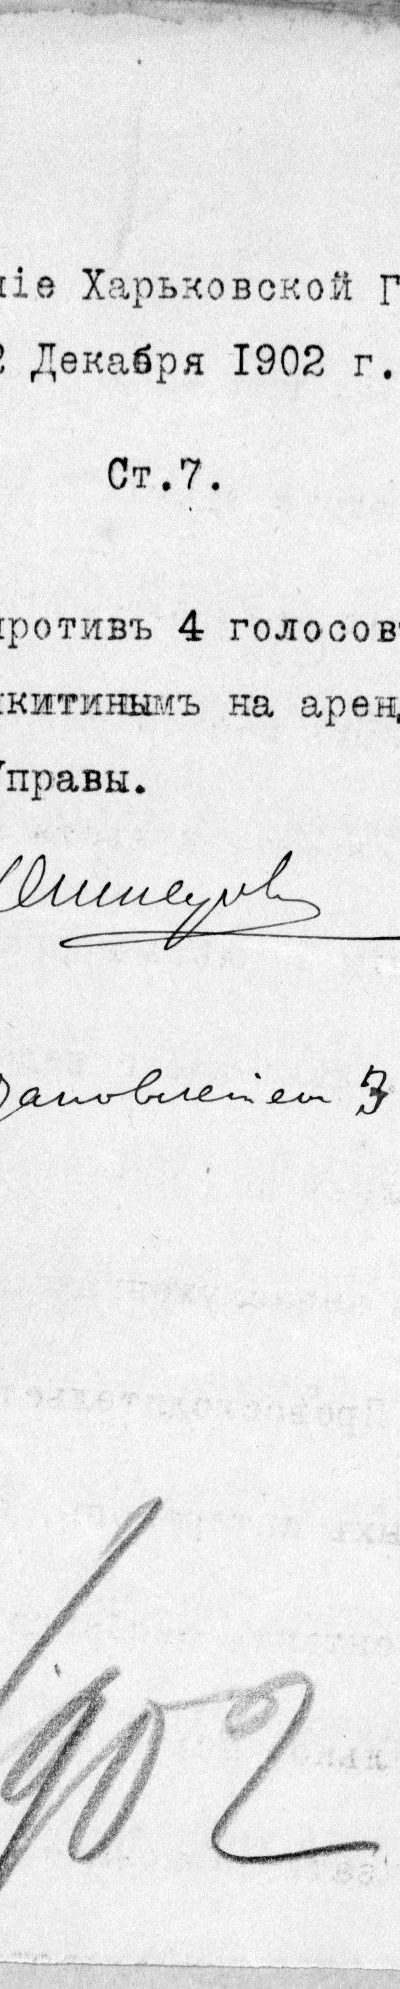 ніе Харьковской Г
2 Декабря 1902 г.
Ст.7.
противъ 4 голосовъ
икитинымъ на арен
Управы.
тановленіем З
902